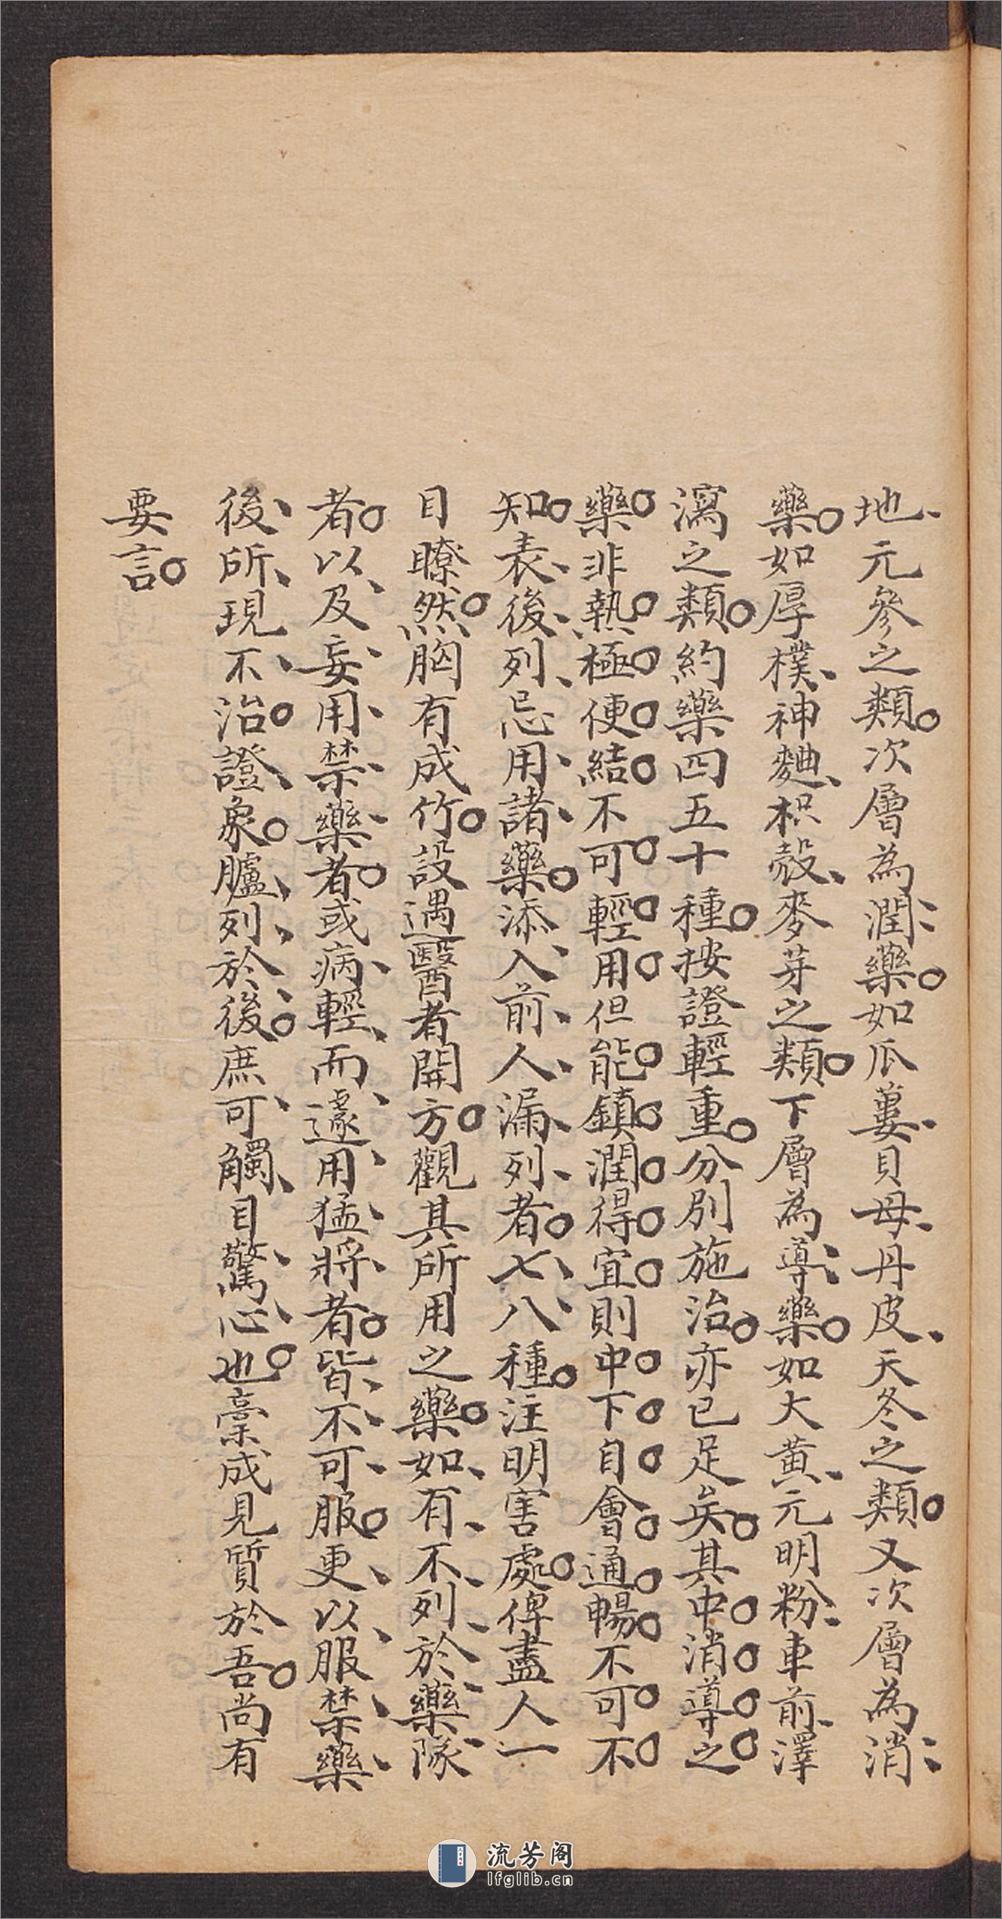 地元參之類次層為潤藥如瓜蔞貝母丹皮天冬之類又次層為消
藥如厚樸神麯枳殼麥芽之類下層為導藥如大黃元明粉車前澤
瀉之類約藥四五十種按證輕重分別施治亦已足矣其中消導之
藥非熱極便結不可輕用但能鎮潤得宜則中下自會通暢不可不
知表後列忌用諸藥添入前人漏列者七八種注明害處俾盡人一
目瞭然胸有成竹設遇醫者開方觀其所用之藥如有不列於藥隊
者以及妄用禁藥者或病輕而遽用猛將者皆不可服更以服禁藥
後所現不治證象臚列於後庶可觸目驚心也稾成見質於吾尚有
要言
流芳阁
lfglib.cn